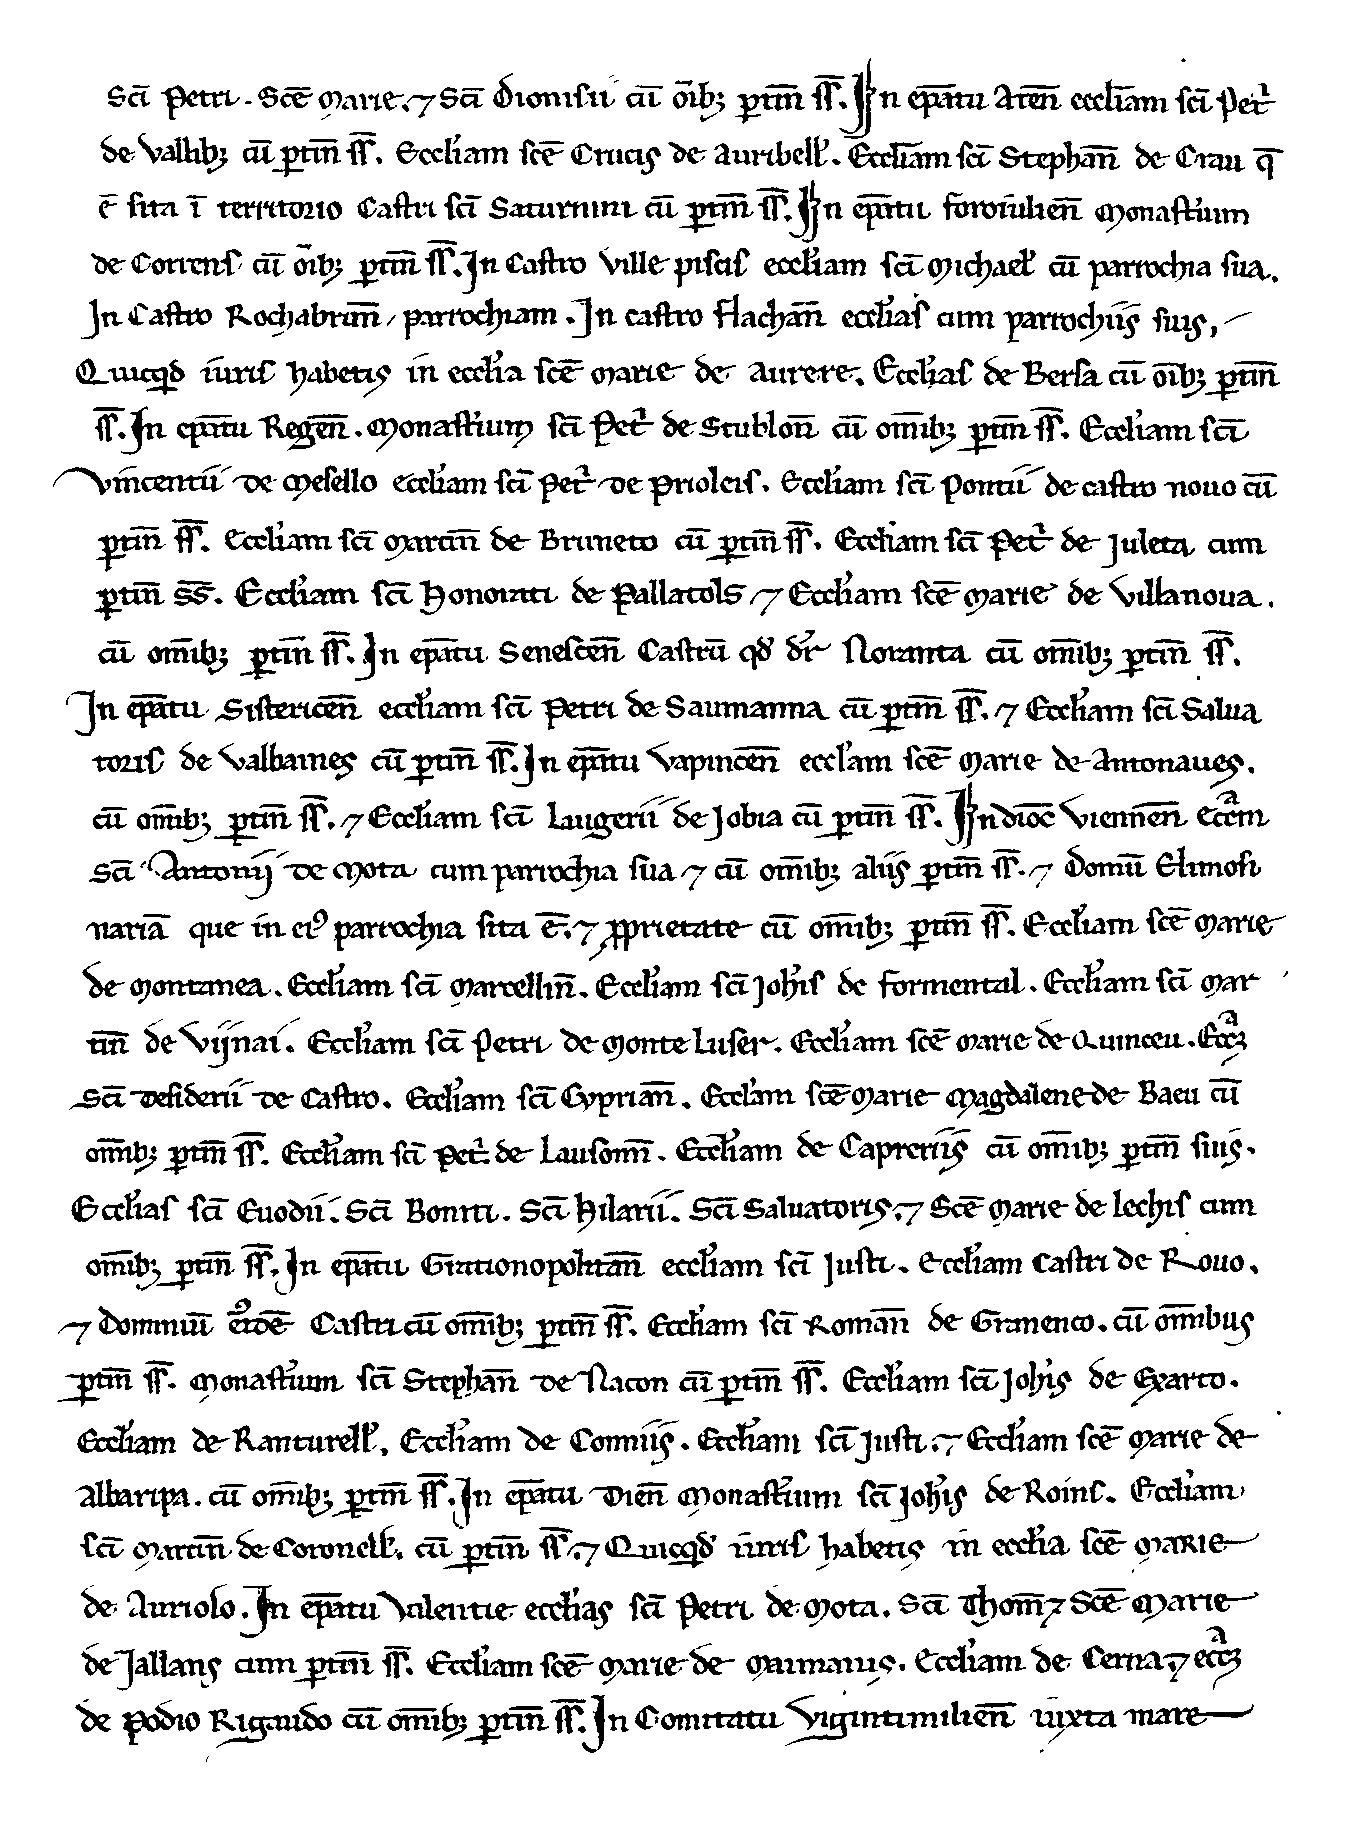 Sci Petri. Sce Marie. ⁊ Sci Dionisii cū oīb; ptin̄ ss̄. In ep̄atu Aten̄ eccliam sci Pet'
de Vallib; cū ptin̄ ss̄. Eccliam sce Crucis de Auribell'. Eccliam sci Stephan̄ de Crau q̄
ē sita ī territorio Castri sci Saturnini cū ptin̄ ss̄. In ep̄atu foroiulien̄ Monast'ium
de Correns cū oīb; ptin̄ ss̄. In Castro ville piscis eccl'iam sci Michael' cū parrochia sua.
In Castro Rochabrun̄, parrochiam. In castro flachan̄ eccl'ias cum parrochiis suis,
Quicq̄d iuris habetis in eccl'ia sce marie de Aurere. Eccl'ias de Bersa cū oīb; ptin̄
ss̄. In ep̄atu Regen̄. Monast'ium sci Pet' de Stublon̄ cū om̄ib; ptin̄ ss̄. Eccl'iam sci
Vincentii de Mesello eccl'iam sci Pet' de Prioleis. Eccl'iam sci Pontii de castro nouo cū
ptin̄ ss̄. Eccl'iam sci Martin̄ de Bruneto cū ptin̄ ss̄. Eccl'iam sci Pet' de Juleta cum
ptin̄ ss̄. Eccl'iam sci Honorati de Pallatols ⁊ Eccl'iam sce Marie de Villanoua.
cū om̄ib; ptin̄ ss̄. In ep̄atu Senescen̄ Castrū qd' dr̄ Noranta cū om̄ib; ptin̄ ss̄.
In ep̄atu Sistericen̄ eccl'iam sci Petri de Saumanna cū ptin̄ ss̄. ⁊ Eccl'iam sci Salua
toris de Valbaines cū ptin̄ ss̄. In ep̄atu Vapincen̄ eccl'am sce Marie de Antonaues.
cū om̄ib; ptin̄ ss̄. ⁊ Eccl'iam sci Laugerii de Jobia cū ptin̄ ss̄. In dioc̄ Viennen̄ Ecc̄am
Sci Antonij de Mota cum parrochia sua ⁊ cū om̄ib; aliis ptin̄ ss̄. ⁊ Domū Elimosi
nariā que in ei' parrochia sita ē. ⁊ pprietate cū om̄ib; ptin̄ ss̄. Eccl'iam sce Marie
de Montanea. Eccl'iam sci Marcellin̄. Eccl'iam sci Joh'is de formental. Eccl'iam sci Mar
tin̄ de Vijnai. Eccl'iam sci Petri de Monte Luser. Eccl'iam sce Marie de Quinceu. Ecc̄az
Sci Desiderii de Castro. Eccl'iam sci Cyprian̄. Eccl'am sce Marie Magdalene de Baeu cū
om̄ib; ptin̄ ss̄. Eccl'iam sci Pet' de Lausonn̄. Eccl'iam de Capreriis cū om̄ib; ptin̄ suis.
Eccl'ias sci Euodii. Sci Boniti. Sci Hilarii. Sci Saluatoris. ⁊ Sce Marie de lechis cum
om̄ib; ptin̄ ss̄. In ep̄atu Gratianopolitan̄ eccl'iam sci Justi. Eccl'iam Castri de Rouo.
⁊ Dominiū ei'dē Castri cū om̄ib; ptin̄ ss̄. Eccl'iam sci Roman̄ de Granenco. cū om̄ibus
ptin̄ ss̄. Monast'ium sci Stephan̄ de Nacon cū ptin̄ ss̄. Eccl'iam sci Joh'is de Exarto.
Eccl'iam de Ranturell'. Eccl'iam de Conniis. Eccl'iam sci Justi. ⁊ Eccl'iam sce Marie de
Albaripa. cū om̄ib; ptin̄ ss̄. In ep̄atu Dien̄ Monast'ium sci Joh'is de Roins. Eccl'iam
sci Martin̄ de Coronell'. cū ptin̄ ss̄. ⁊ Quicq̄d iuris habetis in eccl'ia sce Marie
de Auriolo. In ep̄atu Valentie eccl'ias sci Petri de Mota. Sci Thom̄ ⁊ Sce Marie
de Jallans cum ptin̄ ss̄. Eccl'iam sce Marie de Marnanis. Eccl'iam de Cerna. ⁊ ecc̄az
de Podio Rigaudo cū om̄ib; ptin̄ ss̄. In Comitatu Vigintimilien̄ iuxta mare